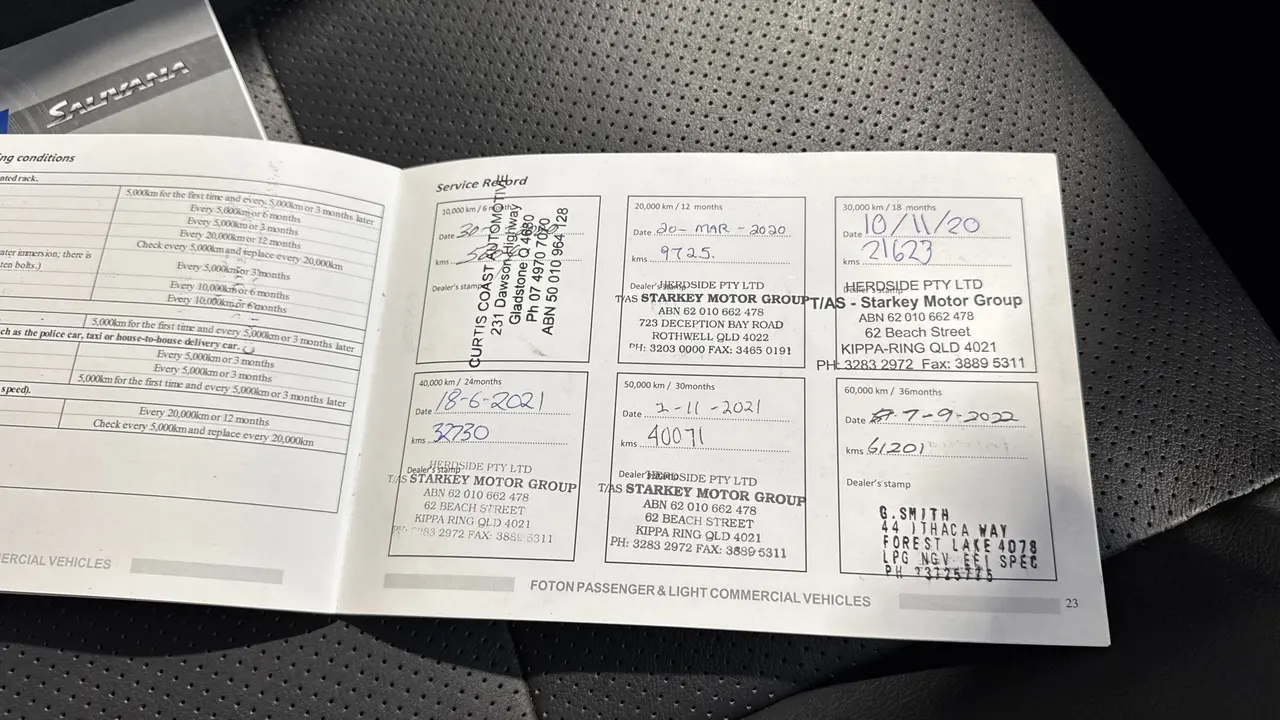 SAUVANA
ng conditions
nted rack.
5,000km for the first time and every, 5,000km or 3 months later
Every 5,000km or 6 months
Every 5,000km or 3 months
Every 20,000km or 12 months
Check every 5,000km and replace every 20,000km
ater immersion; there is
ten bolts.)
Every 5,000km or 3 months
Every 10,000km or 6 months
Every 10,000km or 6 months
5,000km for the first time and every 5,000km or 3 months later
ch as the police car, taxi or house-to-house delivery car.
Every 5,000km or 3 months
Every 5,000km or 3 months
5,000km for the first time and every 5,000km or 3 months later
speed).
Every 20,000km or 12 months
Check every 5,000km and replace every 20,000km
ERCIAL VEHICLES
Service Record
10,000 km / 6 months
Date 30-
kms
Dealer's stamp
CURTIS COAST AUTOMOTIVE
231 Dawson Highway
Gladstone Q 4680
Ph 07 4970 7070
ABN 50 010 964 128
20,000 km / 12 months
Date 20- MAR - 2020
kms 9725.
Dealer's stamp
HERDSIDE PTY LTD
T/AS STARKEY MOTOR GROUP
ABN 62 010 662 478
723 DECEPTION BAY ROAD
ROTHWELL QLD 4022
PH: 3203 0000 FAX: 3465 0191
30,000 km / 18 months
Date 10/11/20
kms 21623
Dealer's stamp
HERDSIDE PTY LTD
T/AS - Starkey Motor Group
ABN 62 010 662 478
62 Beach Street
KIPPA-RING QLD 4021
PH: 3283 2972 Fax: 3889 5311
40,000 km / 24months
Date 18-6-2021
kms 32730
Dealer's stamp
HERDSIDE PTY LTD
T/AS STARKEY MOTOR GROUP
ABN 62 010 662 478
62 BEACH STREET
KIPPA RING QLD 4021
PH: 3283 2972 FAX: 3889 5311
50,000 km / 30months
Date 2-11-2021
kms 40071
Dealer's stamp
HERDSIDE PTY LTD
T/AS STARKEY MOTOR GROUP
ABN 62 010 662 478
62 BEACH STREET
KIPPA RING QLD 4021
PH: 3283 2972 FAX: 3889 5311
60,000 km / 36months
Date 7-9-2022
kms 61201
Dealer's stamp
G.SMITH
44 ITHACA WAY
FOREST LAKE 4078
LPG NGV EFI SPEC
PH 
FOTON PASSENGER & LIGHT COMMERCIAL VEHICLES
23